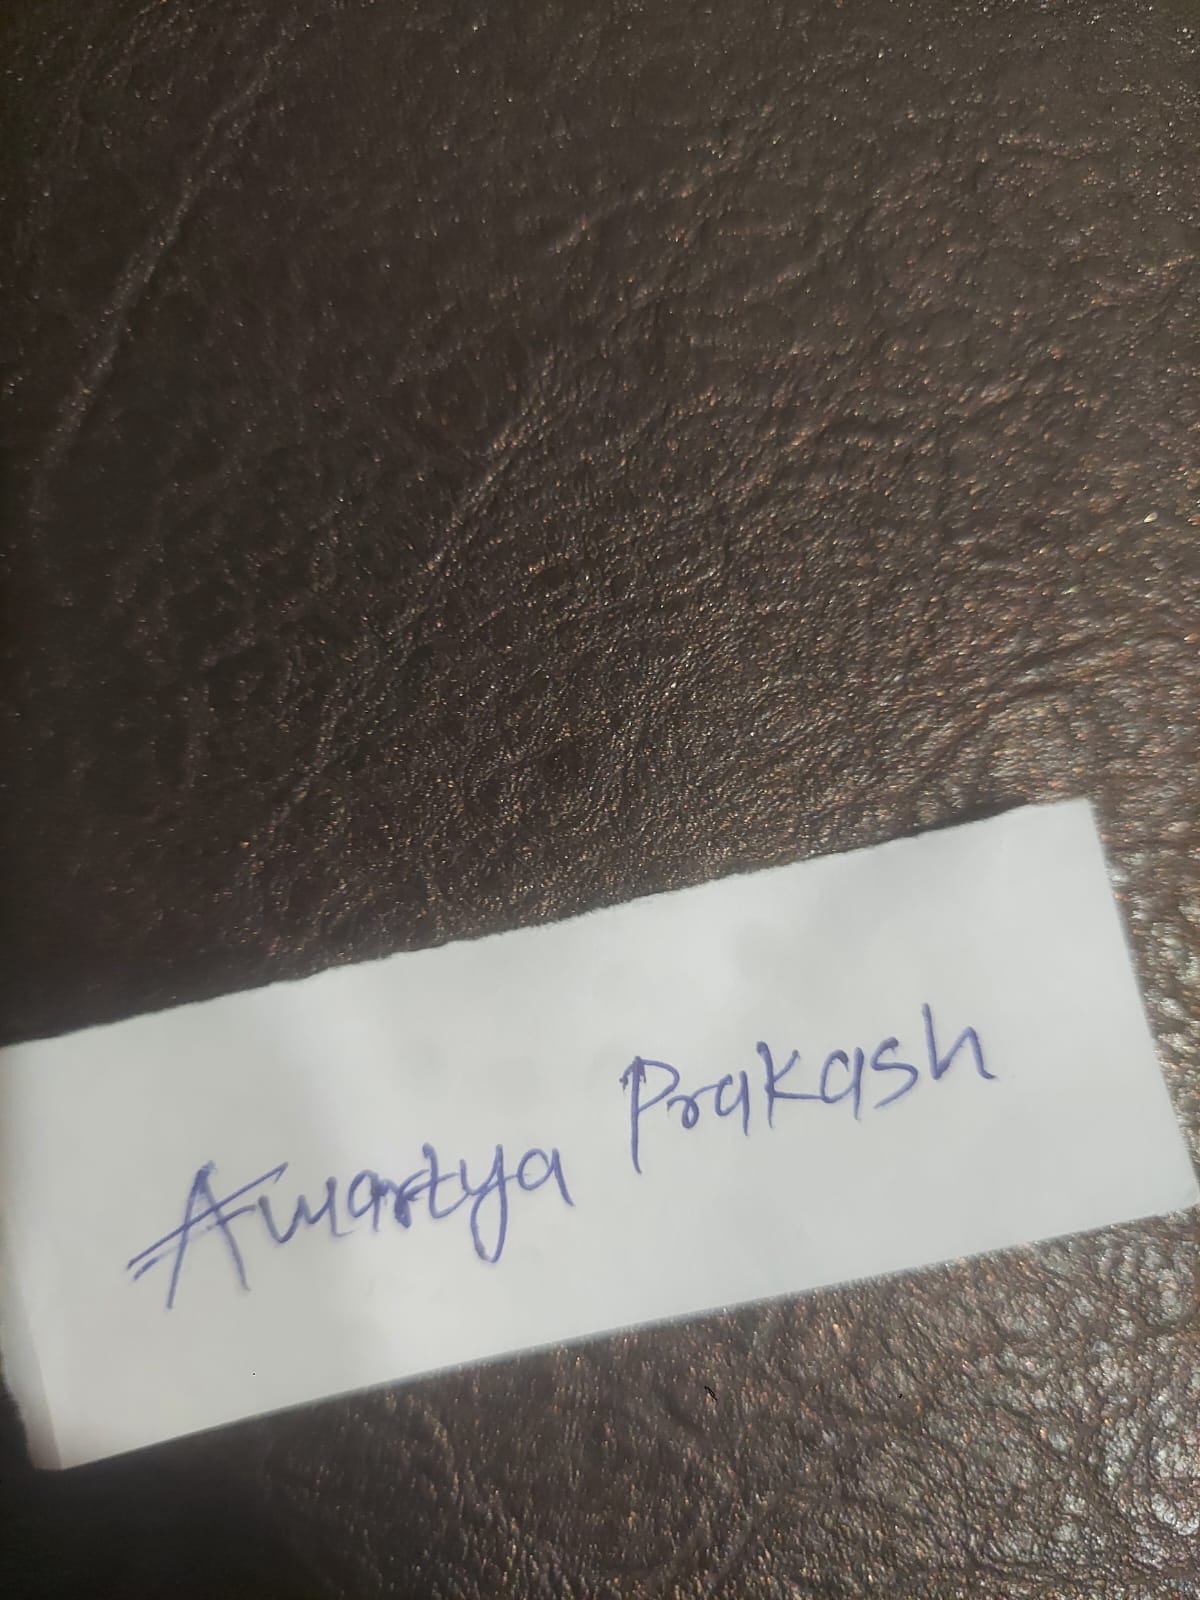 Amartya Prakash